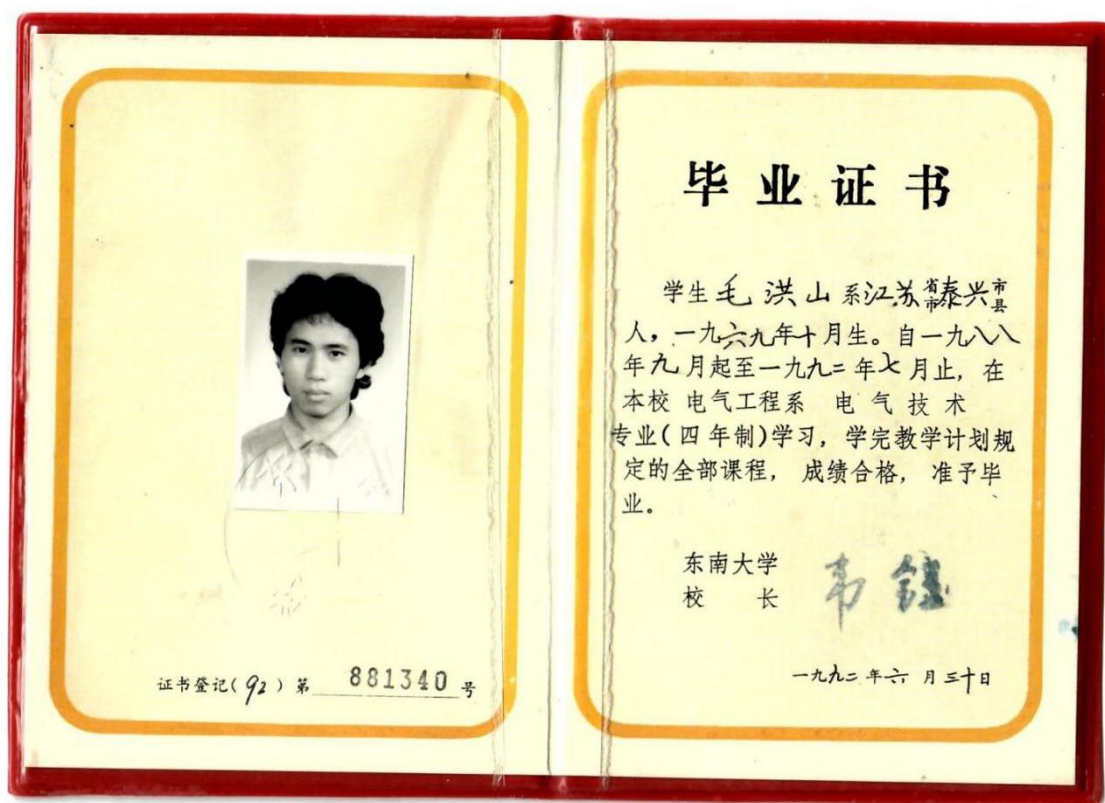 证书登记(92)第 881340 号
毕业证书
学生毛洪山系江苏省市泰兴市县
人，一九六九年十月生。自一九八八
年九月起至一九九二年七月止，在
本校 电气工程系 电气技术
专业(四年制)学习，学完教学计划规
定的全部课程，成绩合格，准予毕
业。
东南大学
校 长 韦钰
一九九二年六月三十日